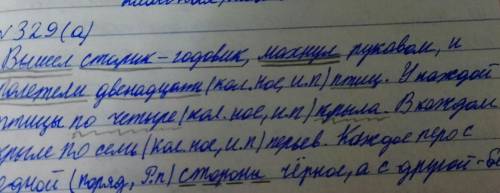 №329(а)
Вышел старик-годовик, махнул рукавом, и
полетели двенадцать (кол.ное, и.п) птиц. У каждой
птицы по четыре (кол.ное, и.п) крыла. В каждом
крыле по семь (кол.ное, и.п) перьев. Каждое перо с
одной (поряд, Р.п) стороны чёрное, а с другой-бе